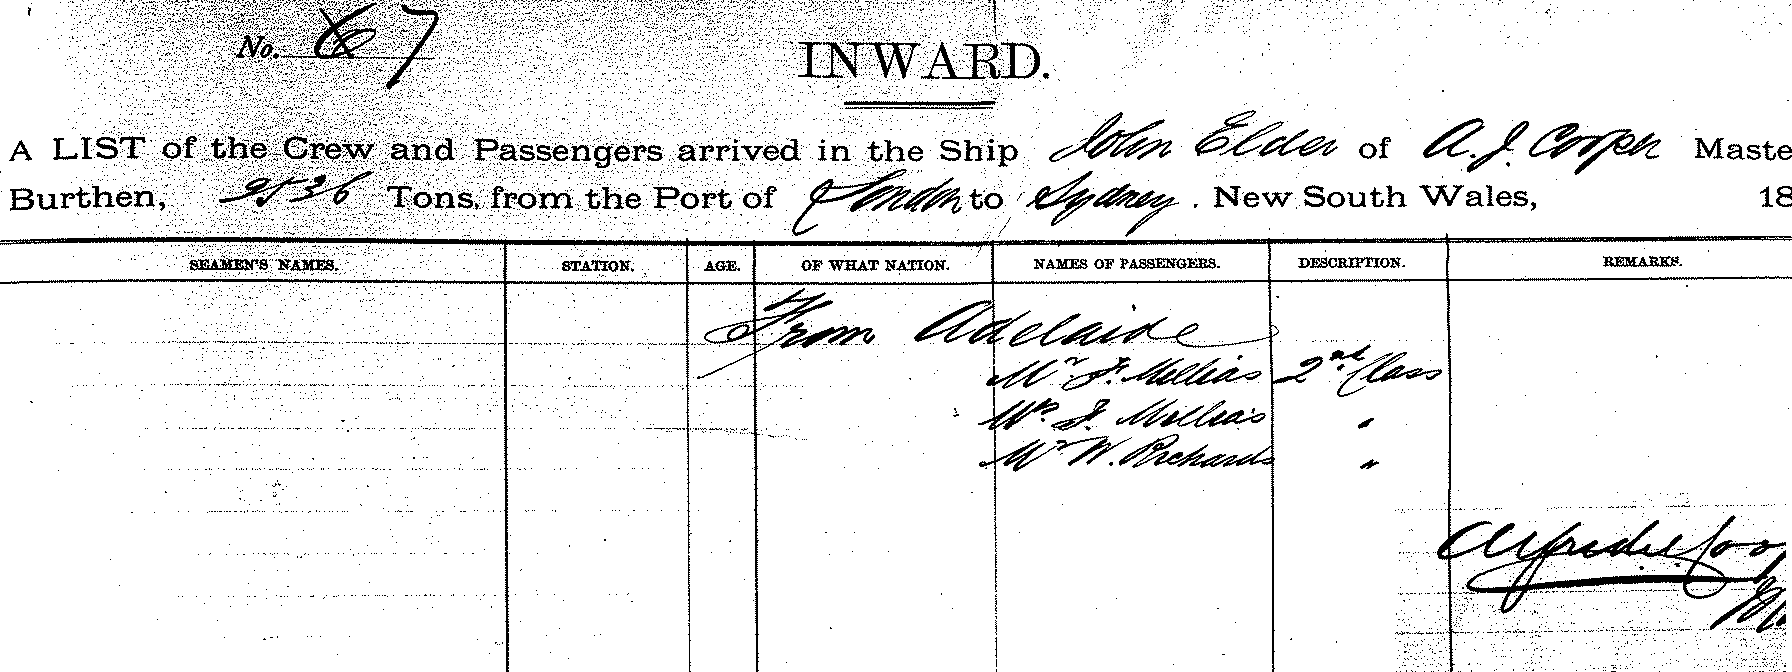 No. 67
INWARD.
A LIST of the Crew and Passengers arrived in the Ship John Elder of A. J. Cooper Maste
Burthen, 2536 Tons, from the Port of London to Sydney. New South Wales, 18
SEAMEN'S NAMES. STATION. AGE. OF WHAT NATION. NAMES OF PASSENGERS. DESCRIPTION. REMARKS.
From Adelaide
Mr. F. Mellias 2nd Class
F. Mellias "
Mr W. Richards "
Alfred J. Coop